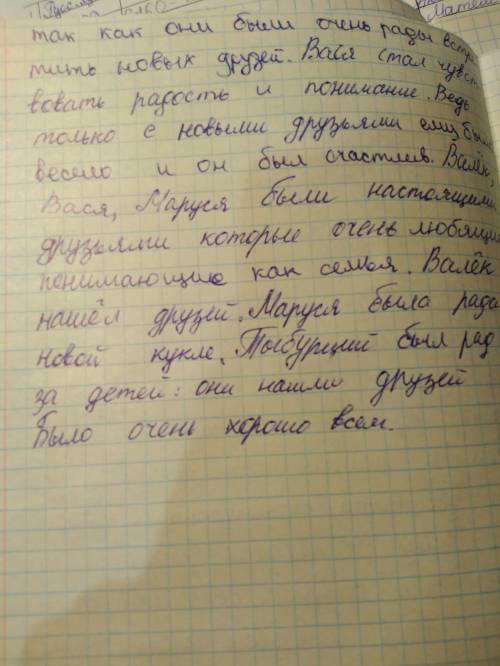 так как они были очень рады встре
тить новых друзей. Вася стал чувст
вовать радость и понимание. Ведь
только с новыми друзьями ему было
весело и он был счастлив. Валёк,
Вася, Маруся были настоящими
друзьями которые очень любящие
понимающие как семья. Валёк
нашёл друзей. Маруся была рада
новой кукле. Тыбурций был рад
за детей: они нашли друзей
Было очень хорошо всем.